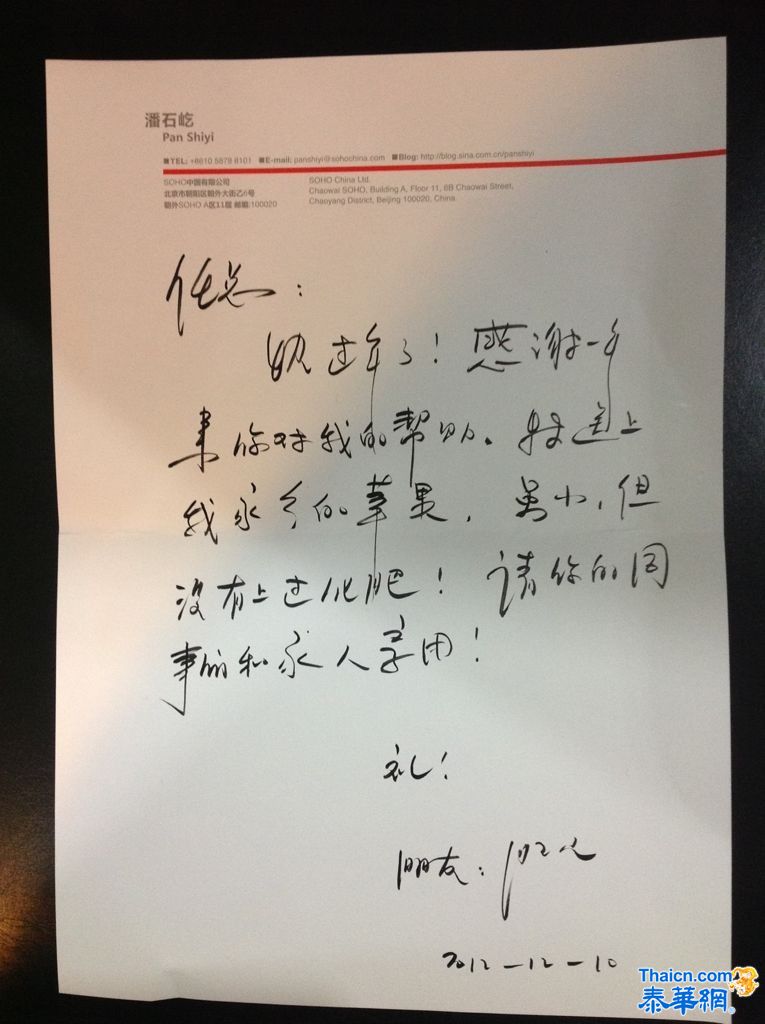 潘石屹
Pan Shiyi
■TEL: +8610 5878 8101 ■E-mail: panshiyi@sohochina.com ■Blog: http://blog.sina.com.cn/panshiyi
SOHO中国有限公司
北京市朝阳区朝外大街乙6号
朝外SOHO A区11层 邮编:100020
SOHO China Ltd.
Chaowai SOHO, Building A, Floor 11, 6B Chaowai Street,
Chaoyang District, Beijing 100020, China
任总：
快过年了！感谢一年
来你对我的帮助。特送上
我家乡的苹果，虽小，但
没有上过化肥！请你的同
事们和家人享用！
礼！
朋友：
2012-12-10
Thaicn.com
泰華網